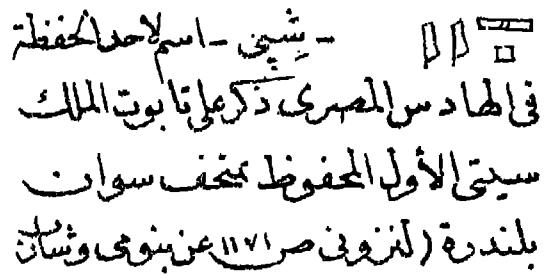 - شِپِي - اسم لاحد الحفظة
في الهادس المصرى ذكر على تابوت الملك
سيتى الأول المحفوظ بمتحف سوان
بلندرة (لنزونى ص ١١٧١ عن بنومى وشارپ